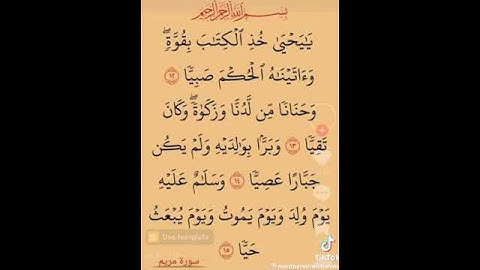 بِسْمِ اللَّهِ الرَّحْمَٰنِ الرَّحِيمِ
يَٰيَحْيَىٰ خُذِ ٱلْكِتَٰبَ بِقُوَّةٍۖ
وَءَاتَيْنَٰهُ ٱلْحُكْمَ صَبِيًّا ١٢
وَحَنَانًا مِّن لَّدُنَّا وَزَكَوٰةًۖ وَكَانَ
تَقِيًّا ١٣ وَبَرًّۢا بِوَٰلِدَيْهِ وَلَمْ يَكُن
جَبَّارًا عَصِيًّا ١٤ وَسَلَٰمٌ عَلَيْهِ
يَوْمَ وُلِدَ وَيَوْمَ يَمُوتُ وَيَوْمَ يُبْعَثُ
حَيًّا ١٥
Use template
TikTok
سورة مريم